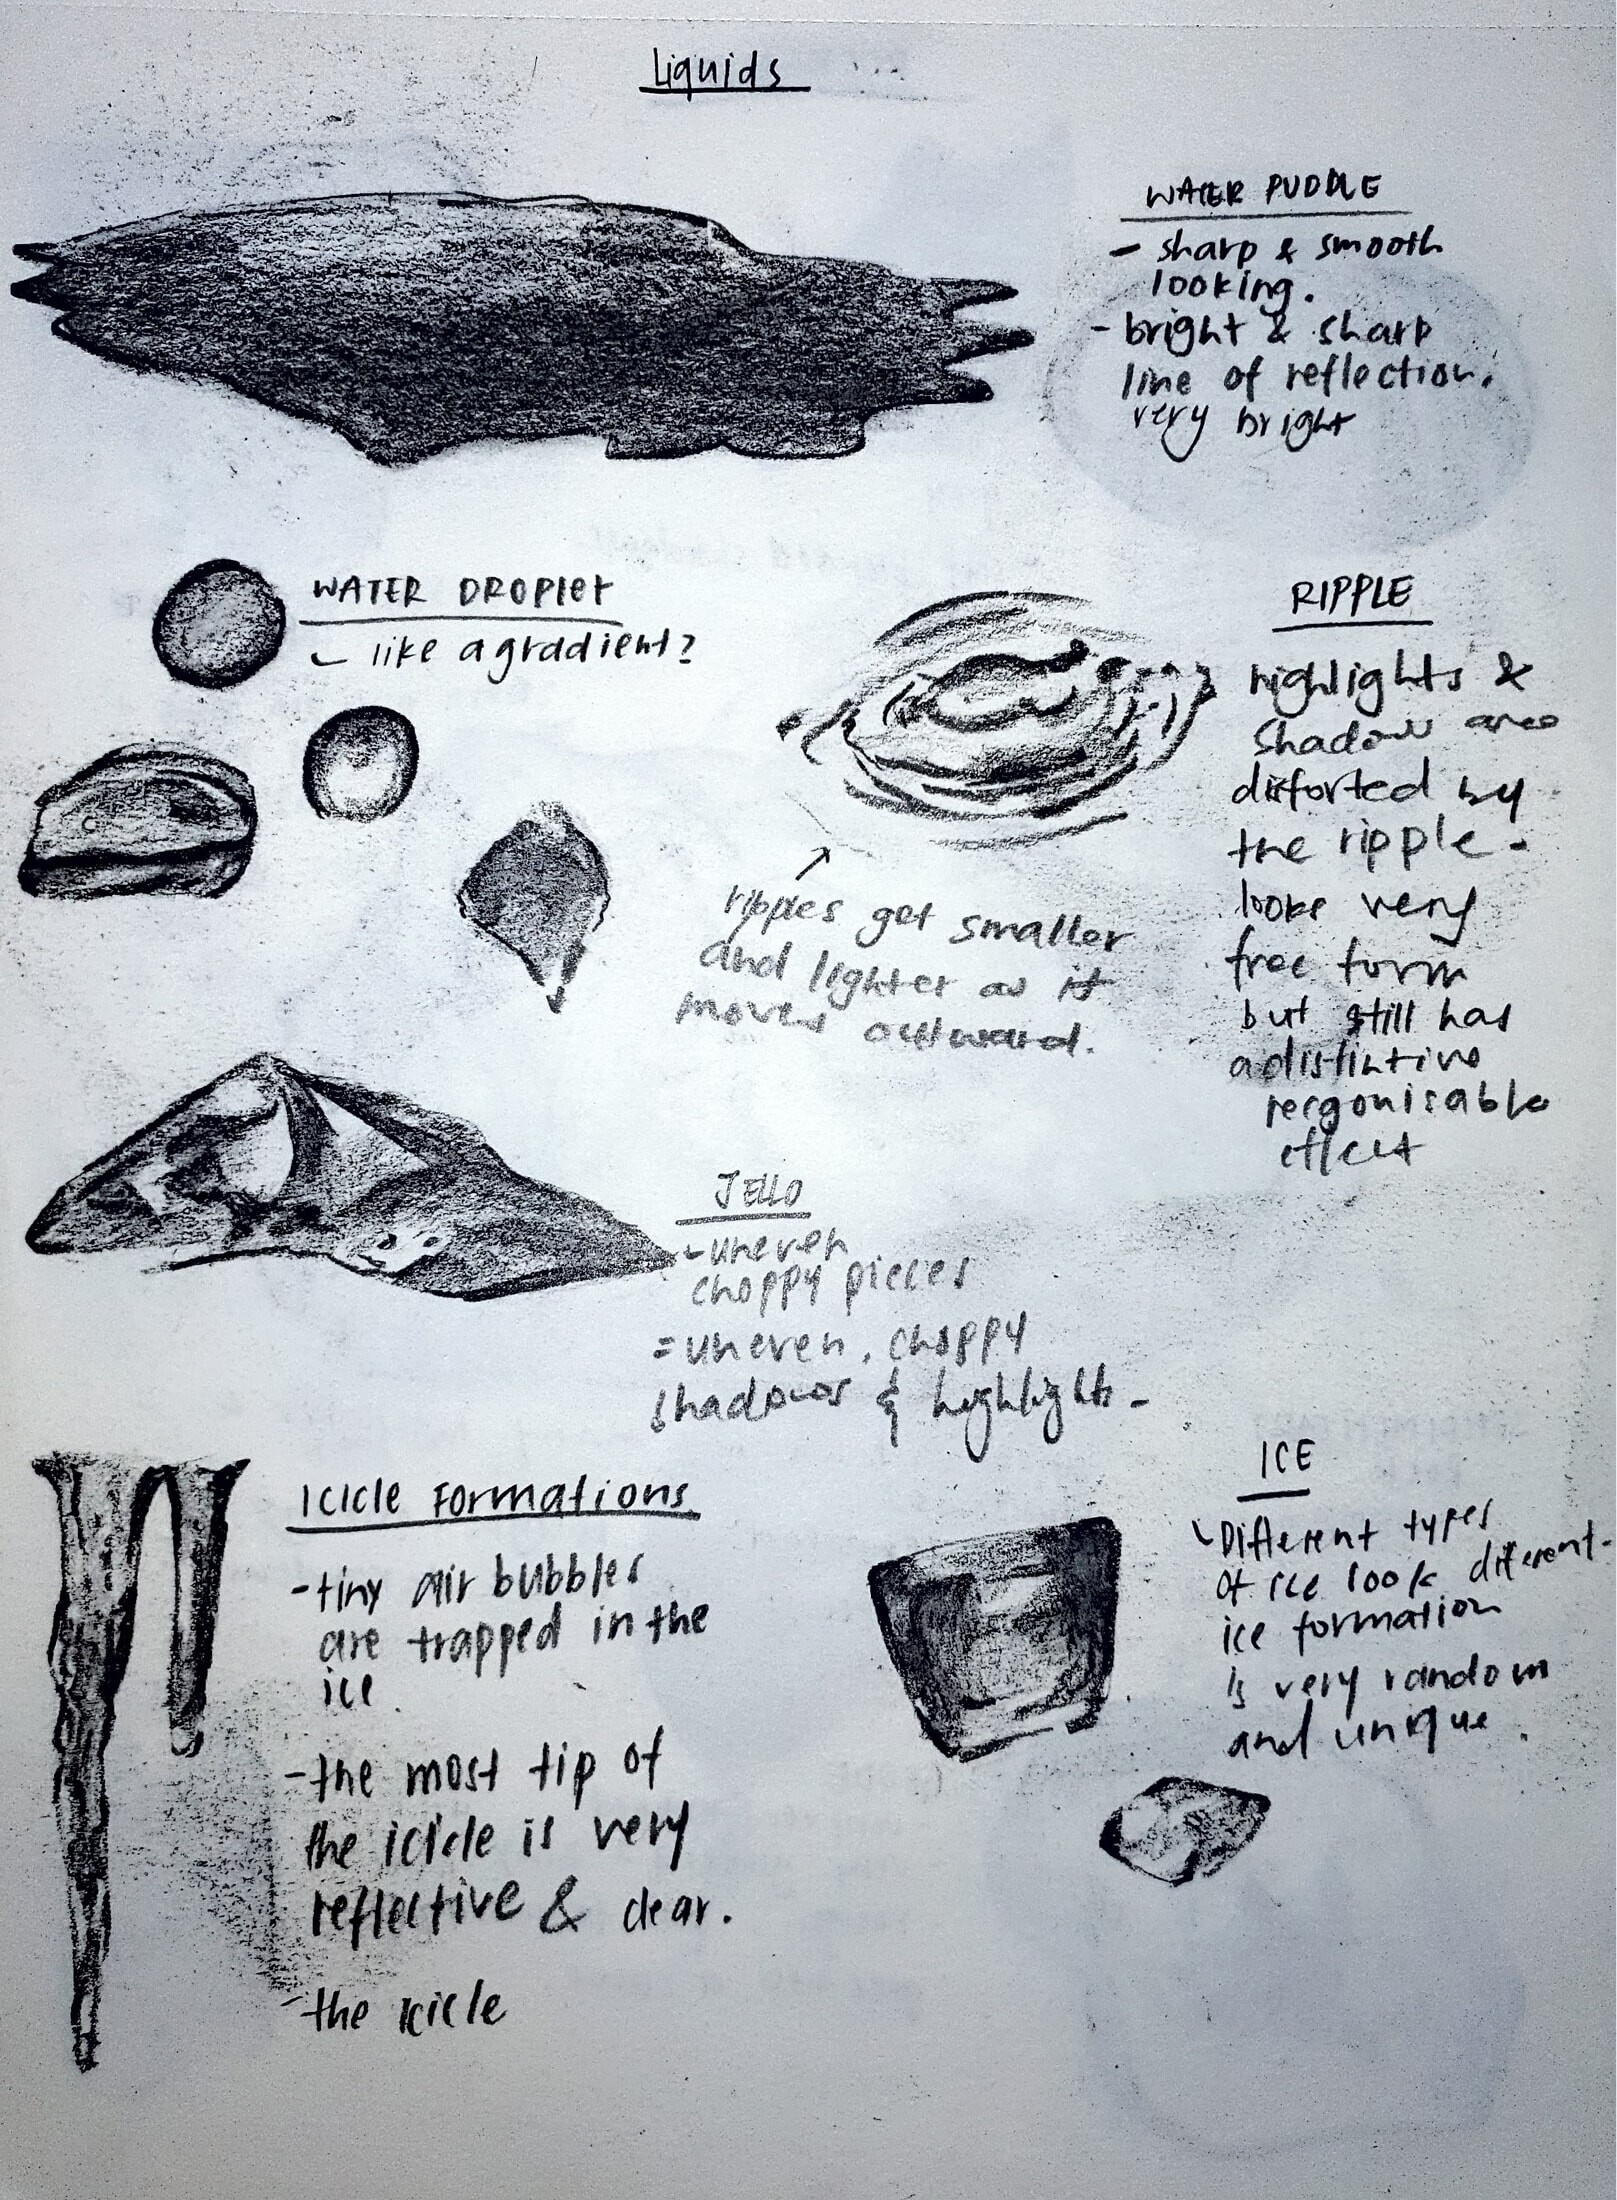 Liquids
WATER PUDDLE
- sharp & smooth
looking.
- bright & sharp
line of reflection.
very bright
WATER DROPlet
- like a gradient?
RIPPLE
highlights &
shadow are
distorted by
the ripple.
looks very
free form
but still has
a distintive
recgonisable
effect
ripples get smaller
and lighter as it
moves outward.
JELLO
- uneven
choppy pieces
= uneven, choppy
shadows & highlights.
ICICle FORMATIONS
- tiny air bubbles
are trapped in the
ice.
- the most tip of
the icicle is very
reflective & clear.
- the icicle
ICE
- Different types
of ice look different.
ice formation
is very random
and unique.